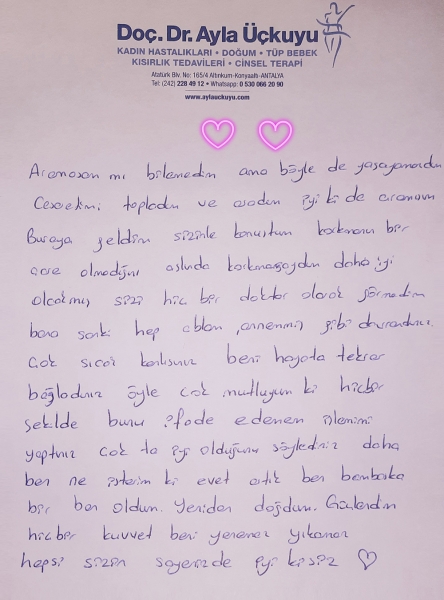 Doç. Dr. Ayla Üçkuyu
KADIN HASTALIKLARI • DOĞUM • TÜP BEBEK
KISIRLIK TEDAVİLERİ • CİNSEL TERAPİ
Atatürk Blv. No: 165/4 Altınkum-Konyaaltı-ANTALYA
Tel: (242) 228 49 12 • Whatsapp: 0 530 066 20 90
www.aylauckuyu.com
Aramasam mı bilemedim ama böyle de yaşayamazdım
Cesaretimi topladım ve aradım iyi ki de aramışım
Buraya geldim sizinle konuştum korkmanın bir
çare olmadığını aslında korkmasaydım daha iyi
olcakmış sizi hiç bir doktor olarak görmedim
bana sanki hep ablam, annenmiş gibi davrandınız.
Çok sıcak kanlısınız beni hayata tekrar
bağladınız öyle çok mutluyum ki hiçbir
şekilde bunu ifade edemem işlemimi
yaptınız çok ta iyi olduğunu söylediniz daha
ben ne isterim ki evet artık ben bambaşka
bir ben oldum. Yeniden doğdum. Güçlendim
hiçbir kuvvet beni yenemez yıkamaz
hepsi sizin sayenizde iyi ki siz ♡